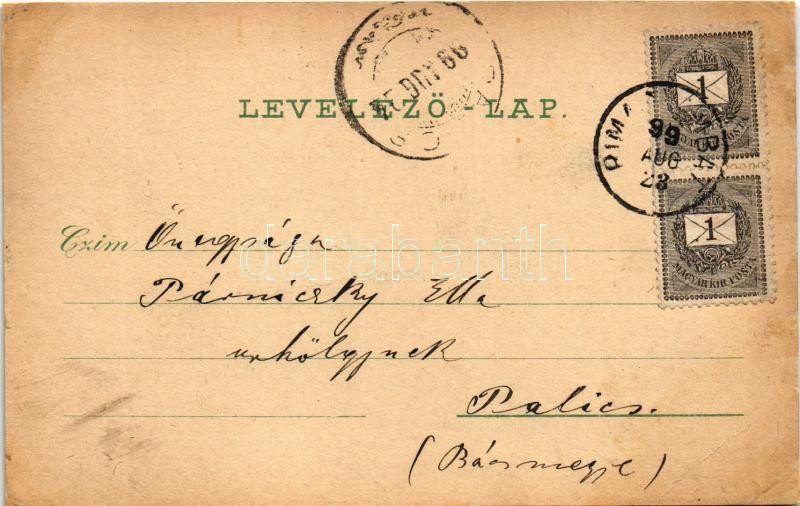 LEVELEZŐ-LAP.
99 AUG 25
99
AUG
23
1
MAGYAR KIR. POSTA
1
MAGYAR KIR. POSTA
Czim Őnagysága
Párniczky Ella
urhölgynek
Palics.
(Bácsmegye)
darabanth